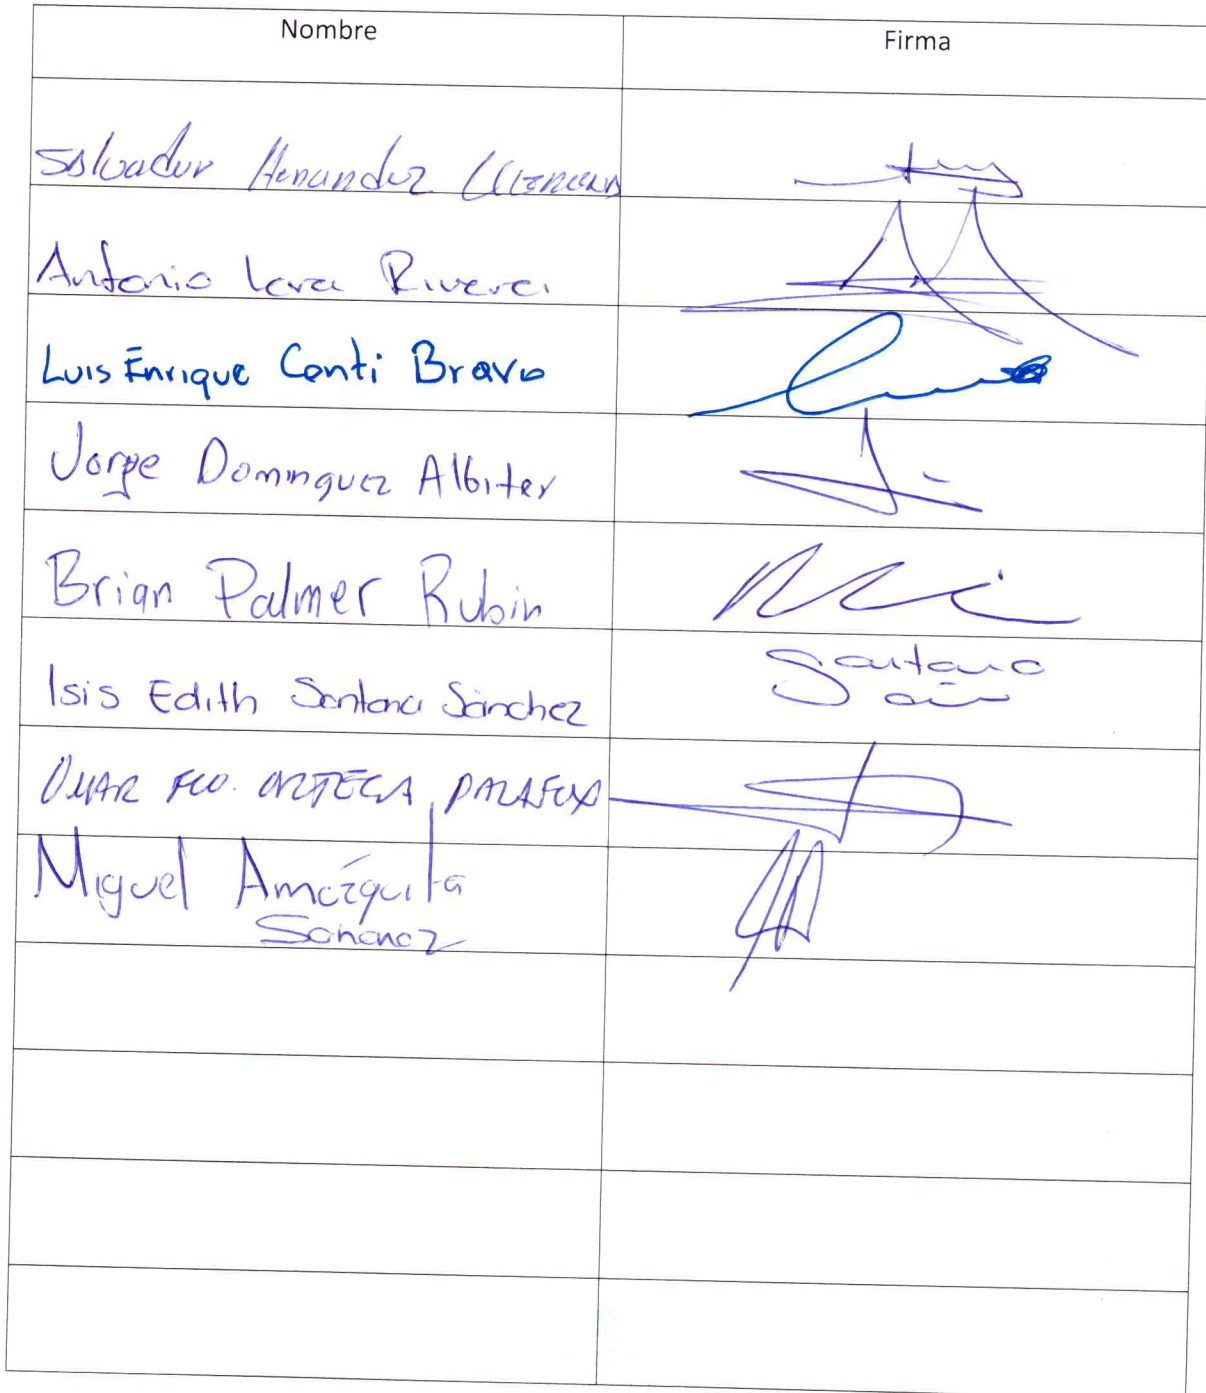 Nombre Firma
Salvador Hernandez
Antonio Lara Rivera
Luis Enrique Conti Bravo
Jorge Dominguez Albiter
Brian Palmer Rubin
Isis Edith Santana Sánchez
Santana
OMAR FCO. ORTEGA PALAFOX
Miguel Amézquita